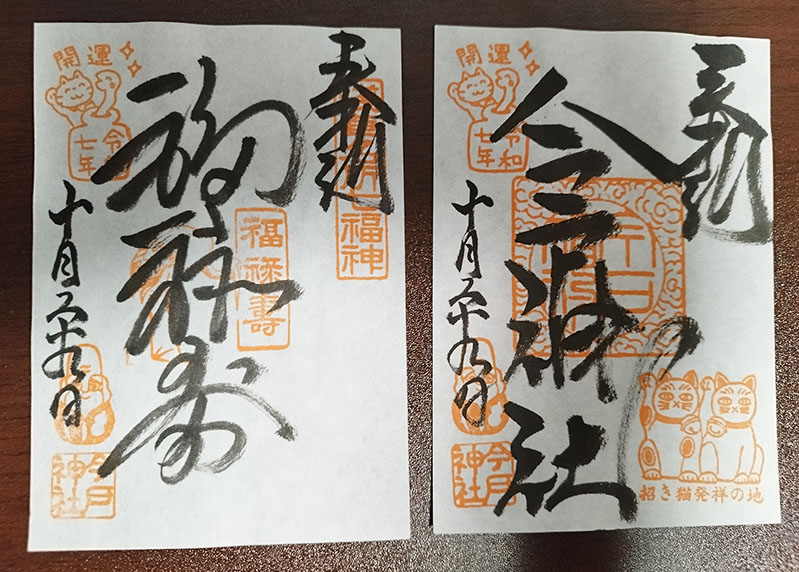 奉拝
福神
福禄寿
福禄寿
開運
令和
七年
十月二十九日
今戸
神社
奉拝
今戸神社
開運
令和
七年
十月二十九日
今戸
神社
招き猫発祥の地